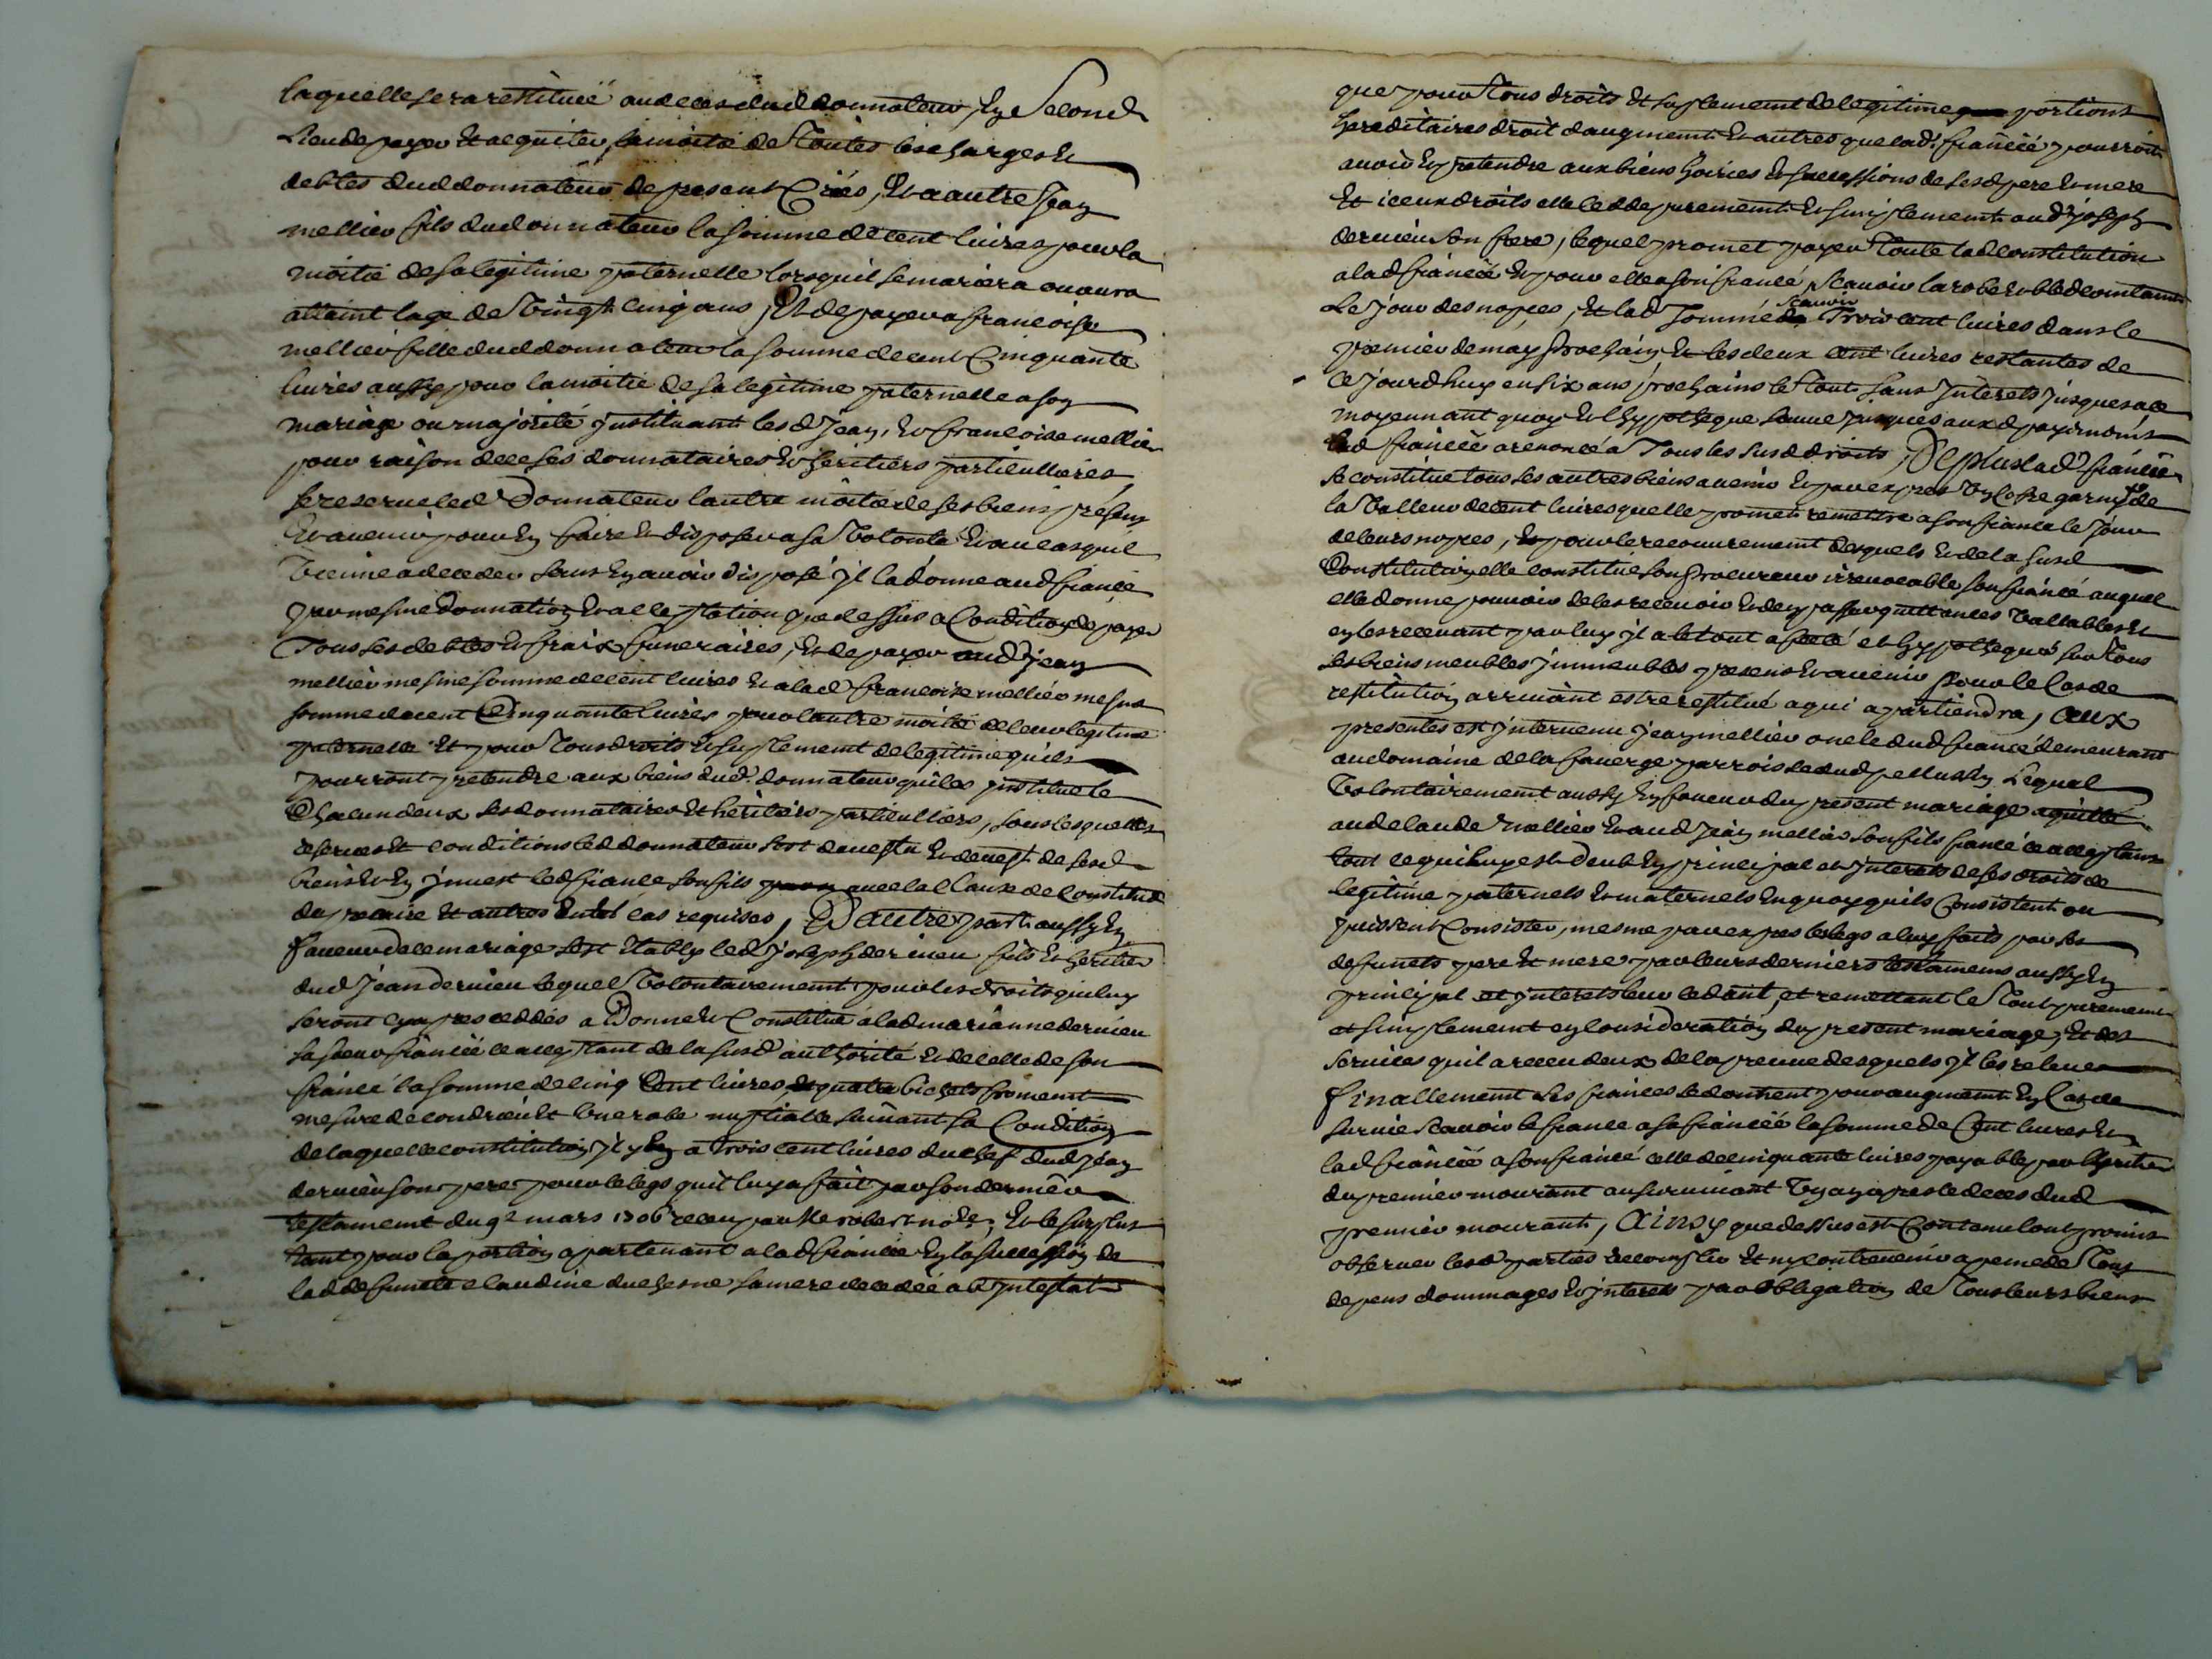 laquelle sera restituéé au deces dud donnateur, En Second
Lieu de payer Et acquiter, la moitié de Toutes les charges Et
debtes dud donnateur de present Créés, Et a autre Jean
mellier fils dud donnateur la somme de cent livres pour la
moitié de sa legitime paternelle lorsquil se mariera ou aura
attaint lage de Vingt cinq ans, Et de payer a francoise
mellier fille dud donnateur la somme de cent Cinquante
livres aussy pour la moitie de sa legitime paternelle a son
mariage ou majorité jnstituant lesd Jean, Et francoise mellier
pour raison de ce ses donnataires Et heritiers particulliers
se reserve led Donnateur lautre moitié de ses biens présens
Et avenir pour En faire Et disposer a sa Volonté Et au cas quil
Vienne a deceder sans En avoir disposé jl la donne aud fiancé
par mesme donnation Et acceptation que dessus a Condition de payer
Tous ses debtes Et fraix funeraires, Et de payer aud Jean
mellier mesme somme de cent livres Et a lad francoise mellier mesme
somme de cent Cinquante livres pour lautre moitié de leur legitime
paternelle Et pour Tous droits Et suplement de legitime quils
pourront pretendre aux biens dud. donnateur quil les jnstitue le
Chacun deux ses donnataires Et heritiers particulliers, sous lesquelles
reserves Et conditions led donnateur sest devestu Et devest de sesd
biens Et En jnvest led fiance son fils avec la Clause de Constitut
de precaire Et autres En tel cas requises, D'autre part aussy En
faveur de ce mariage sest Etably led Joseph dervieu fils Et heritier
dud Jean dervieu lequel Volontairement pour les droits qui luy
seront cy apres ceddés a Donné Et Constitué a lad marianne dervieu
sa soeur fiancéé ce acceptant de la susd authorité Et de celle de son
fiancé la somme de cinq Cent livres, Et quatre bichets froment
mesure de condrieu Et Une robe nuptialle suivant sa Condition
de laquelle constitution jl y En a trois cent livres du chef dud Jean
dervieu son pere pour le legs quil luy a fait par son dernier
testament du 9e mars 1706 receu par Me robert nore, Et le surplus
tant pour la portion apartenant a lad fiancée En la succession de
lad defuncte claudine duchesne sa mere decedéé ab jntestat
que pour Tous droits Et suplement de legitime portions
hereditaires droit daugment Et autres que lad. fiancéé pourroit
avoir Et pretendre aux biens hoiries Et successions de sesd pere Et mere
Et iceux droits elle cedde purement Et simplement aud Joseph
dervieu Son frere, lequel promet payer Toute lad Constitution
a lad fiancéé Et pour elle a son fiancé, Scavoir la robe Et bled contants
Le jour des nopces, Et lad Somme Scavoir Trois cent livres dans le
premier de may prochain Et les deux cent livres restantes de
ce jourdhuy en six ans prochains le Tout sans jnterets jusques a ce
moyennant quoy Et lhypotheque sauve jusques auxd payements
lad fiancéé a renoncé a Tous les susd droits, De plus lad fiancée
se constitue tous ses autres biens avenir Et par expres Un Cofre garny de
la Valleur de cent livres quelle promet remettre a son fiancé le jour
de leurs nopces, Et pour le recouvrement desquels Et de la susd
Constitution elle constitue son Procureur irrevocable son fiancé auquel
elle donne pouvoir de les recevoir Et den passer quittances Vallables Et
en les recevant par luy jl a le tout assuré et hypothequé sur Tous
ses biens meubles jmmeubles presens Et avenir Pour le Cas de
restitution arrivant estre restitué a qui apartiendra, Aux
presentes est jntervenu Jean mellier oncle dud fiancé demeurant
au domaine de la faverge parroisse dud pellussin Lequel
Volontairement aussy En faveur du present mariage aquitte
aud claude mellier Et aud Jean mellier son fils fiancé ce acceptans
tout ce qui luy est deub En principal et jnterets de ses droits de
legitime paternels Et maternels En quoy quils Consistent ou
puissent Consister, mesme par expres les legs a luy faits par ses
defuncts pere Et mere par leurs derniers testaments aussy En
principal et jnterets leur cedant, et remettant le Tout purement
et simplement en Consideration du present mariage, Et des
services quil a receu deux de la preuve desquels jl les releve
Finallement Les fiances se donnent pour augment En Cas de
survie Scavoir le fiance a sa fiancéé la somme de Cent livres Et
lad fiancéé a son fiancé celle de cinquante livres payable par lheritier
du premier mourant au survivant Un an apres le deces dud
premier mourant, Ainsy que dessus est Contenu lont promis
observer lesd parties accomplir Et ny contrevenir a peine de Tous
depens dommages Et jnterets par obligation de Tous leurs biens